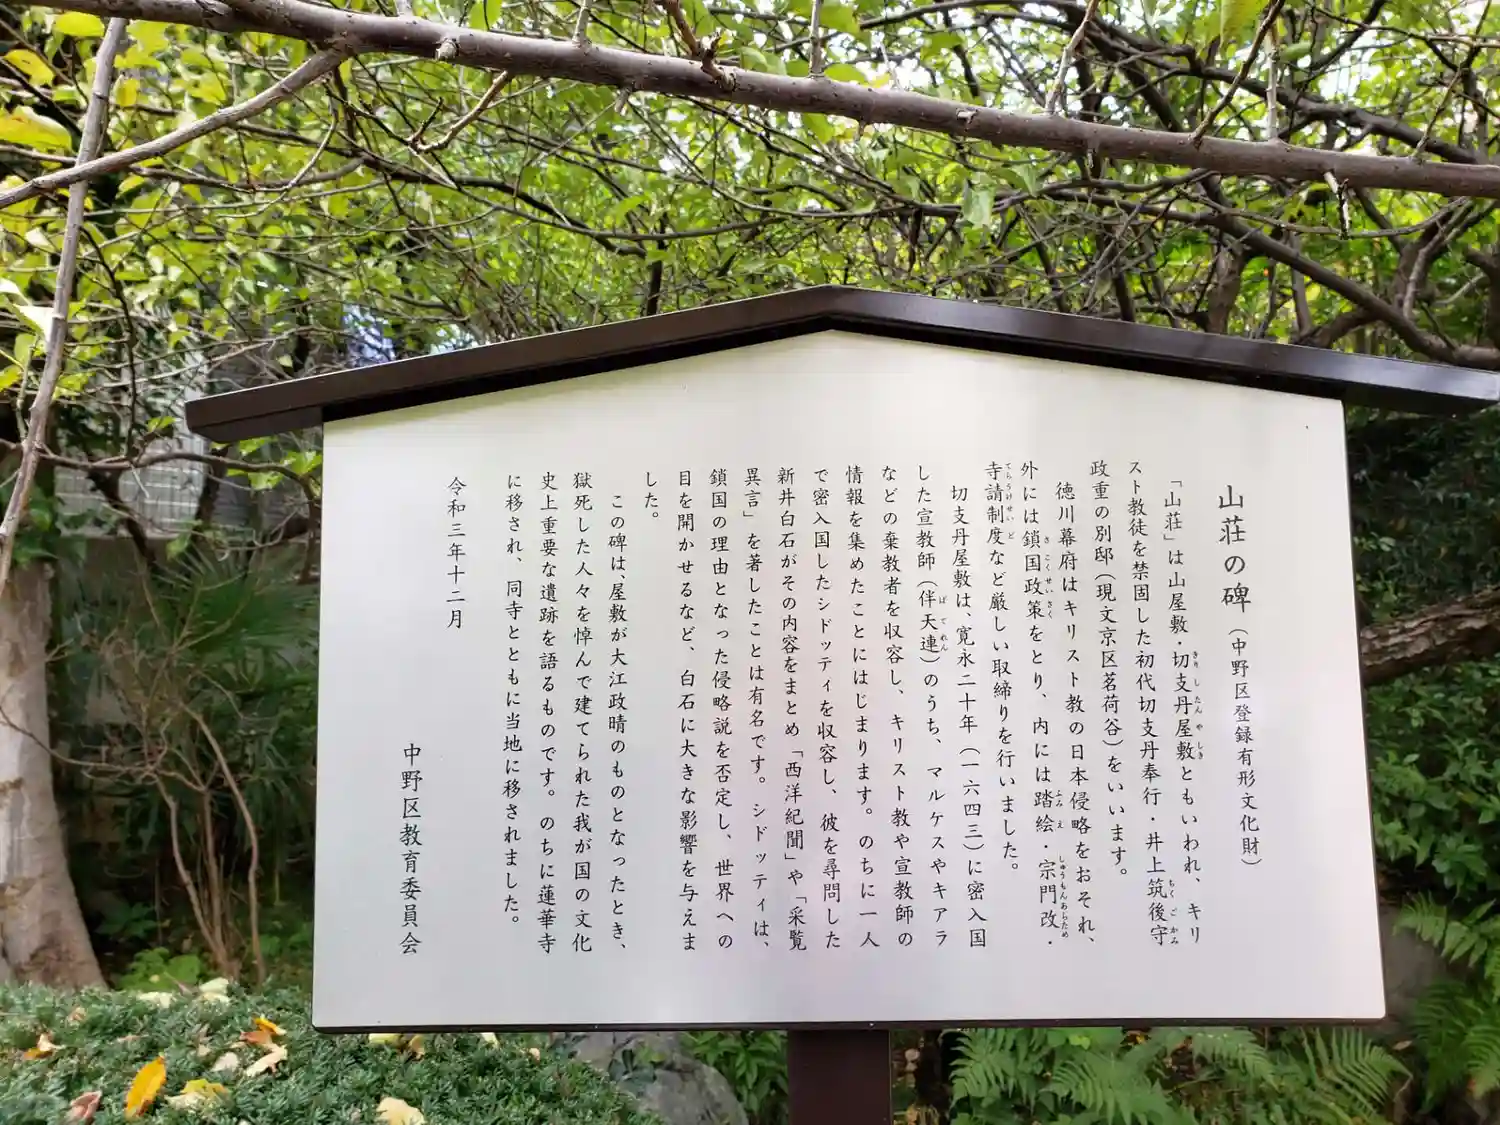 山荘の碑（中野区登録有形文化財）
「山荘」は山屋敷・切支丹屋敷ともいわれ、キリ
スト教徒を禁固した初代切支丹奉行・井上筑後守
政重の別邸（現文京区茗荷谷）をいいます。
徳川幕府はキリスト教の日本侵略をおそれ、
外には鎖国政策をとり、内には踏絵・宗門改・
寺請制度など厳しい取締りを行いました。
切支丹屋敷は、寛永二十年（一六四三）に密入国
した宣教師（伴天連）のうち、マルケスやキアラ
などの棄教者を収容し、キリスト教や宣教師の
情報を集めたことにはじまります。のちに一人
で密入国したシドッティを収容し、彼を尋問した
新井白石がその内容をまとめ「西洋紀聞」や「采覧
異言」を著したことは有名です。シドッティは、
鎖国の理由となった侵略説を否定し、世界への
目を開かせるなど、白石に大きな影響を与えま
した。
この碑は、屋敷が大江政晴のものとなったとき、
獄死した人々を悼んで建てられた我が国の文化
史上重要な遺跡を語るものです。のちに蓮華寺
に移され、同寺とともに当地に移されました。
令和三年十二月
中野区教育委員会